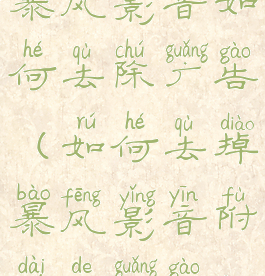 暴风影音如
hé qù chú guǎng gào
何去除广告
rú hé qù diào
（如何去掉
bào fēng yǐng yīn fù
暴风影音附
dài de guǎng gào